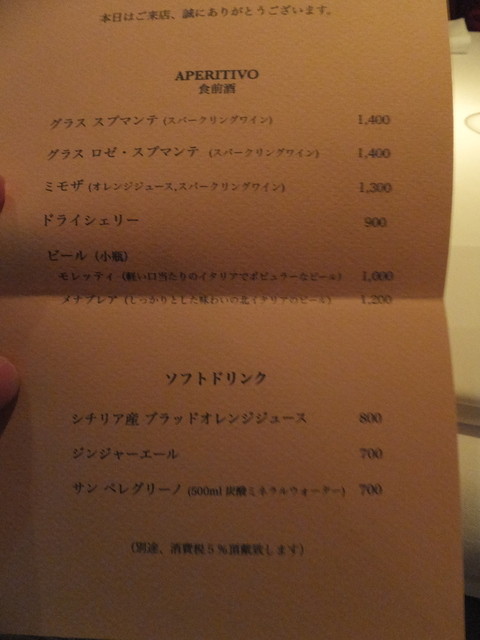 本日はご来店、誠にありがとうございます。
APERITIVO
食前酒
グラス スプマンテ (スパークリングワイン) 1,400
グラス ロゼ・スプマンテ (スパークリングワイン) 1,400
ミモザ (オレンジジュース,スパークリングワイン) 1,300
ドライシェリー 900
ビール (小瓶)
モレッティ (軽い口当たりのイタリアでポピュラーなビール) 1,000
メナブレア (しっかりとした味わいの北イタリアのビール) 1,200
ソフトドリンク
シチリア産 ブラッドオレンジジュース 800
ジンジャーエール 700
サン ペレグリーノ (500ml 炭酸ミネラルウォーター) 700
(別途、消費税5%頂戴致します)